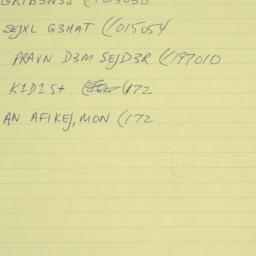 SEJXL G3HAT (/015054
PRAVN D3M SEJD3R (/197010
K1D1S+ (/172
AN AFIKEJ, MON (/172